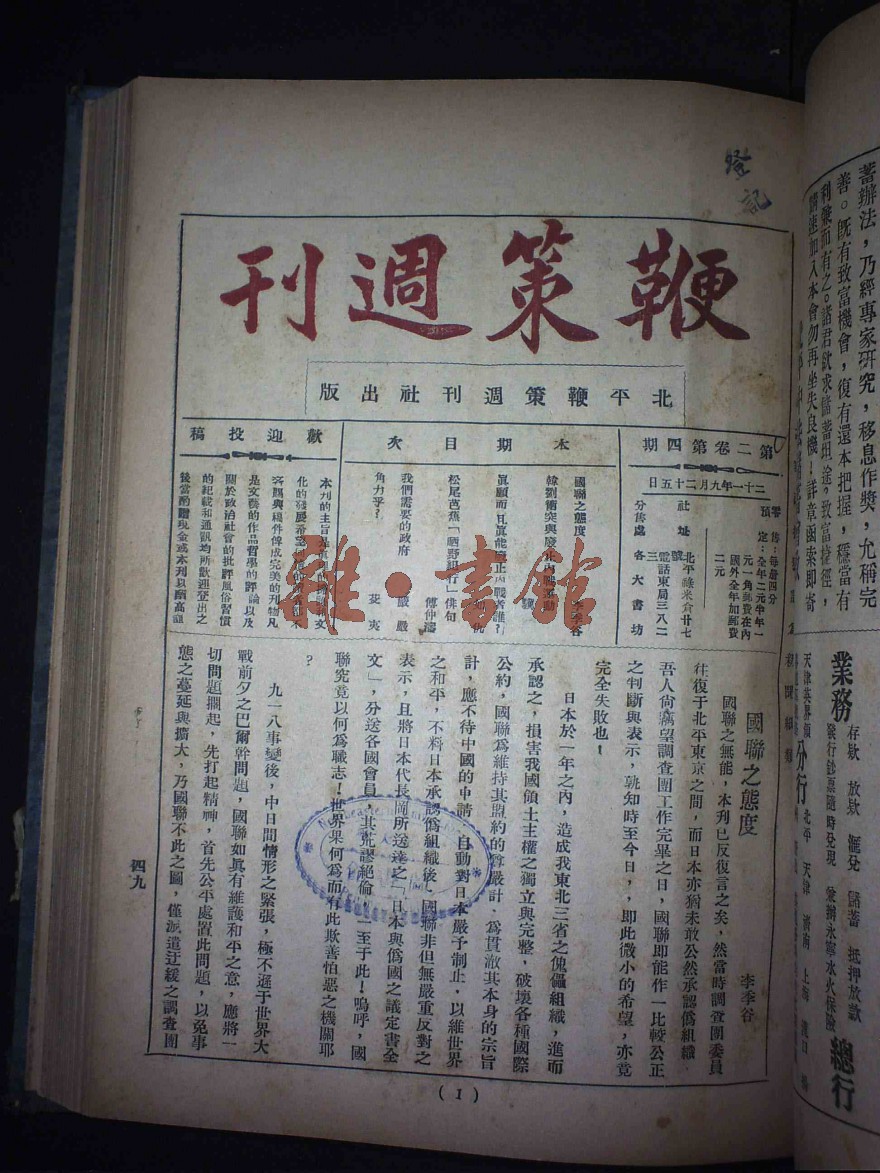 登記
鞭策週刊
北平鞭策週刊社出版
第二卷第四期
二十一年九月二十五日
零售：每册四分
預定：全年二元半年一
元一角郵費在內
國外全年加郵費
二元
社址 北平緣米倉廿七
號
電話東局三八二
三
分售處 各大書坊
本期目次
國聯之態度 李季谷
韓劉衝突與廢止內戰運動
眞願而且眞能廢止內戰者誰？
松尾芭蕉「晒野紀行」俳句
傅仲濤
我們需要的政府 嚴嚴
角力乎？ 斐爽
歡迎投稿
本刊的主旨是
化的發展希望
客觀與標件傳成完美的刊物凡
是文藝的作品哲學的評論以及
關於政治社會的批評風俗習慣
的紀載和通訊均所歡迎登出之
後當酌贈現金或本刊以酬高誼
國聯之態度
李季谷
國聯之無能，本刊已反復言之矣，然當時調查團委員
往復于北平東京之間，而日本亦猶未敢公然承認僞組織，
吾人尙薦望調查團工作完畢之日，國聯卽能作一比較公正
之判斷與表示，孰知時至今日，卽此微小的希望，亦竟
完全失敗也！
日本於一年之內，造成我東北三省之傀儡組織，進而
承認之，損害我國領土主權之獨立與完整，破壞各種國際
公約，國聯爲維持其盟約的尊嚴計，爲貫澈其本身的宗旨
計，應不待中國的申請，自動對日本嚴予制止，以維世界
之和平，不料日本承認僞組織後，國聯非但無嚴重反對之
表示，且將日本代長岡所送達之「日本與僞國之議定書全
文」，分送各國會員，其荒謬絕倫，一至于此！嗚呼，國
聯究竟以何爲職志！世界果何爲而有此欺善怕惡之機關耶
？
九一八事變後，中日間情形之緊張，極不遜于世界大
戰前夕之巴爾幹問題，國聯如眞有維護和平之意，應將一
切問題擱起，先打起精神，首先公平處置此問題，以免事
態之蔓延與擴大，乃國聯不此之圖，僅派遣迂緩之調查團
四九
(1)
雜·書館
蓄辦法，乃經專家研究，移息作獎，允稱完
善。旣有致富機會，復有還本把握，穩當有
利兼而有之。諸君欲求儲蓄坦途，致富捷徑，
請速加入本會勿再坐失良機！詳章函索卽寄
業務
存欵 放欵 滙兌 儲蓄 抵押放款
發行鈔票隨時兌現 兼辦永寧水火保險
總行
天津英界領
分行
北平 天津 濟南 上海 漢口